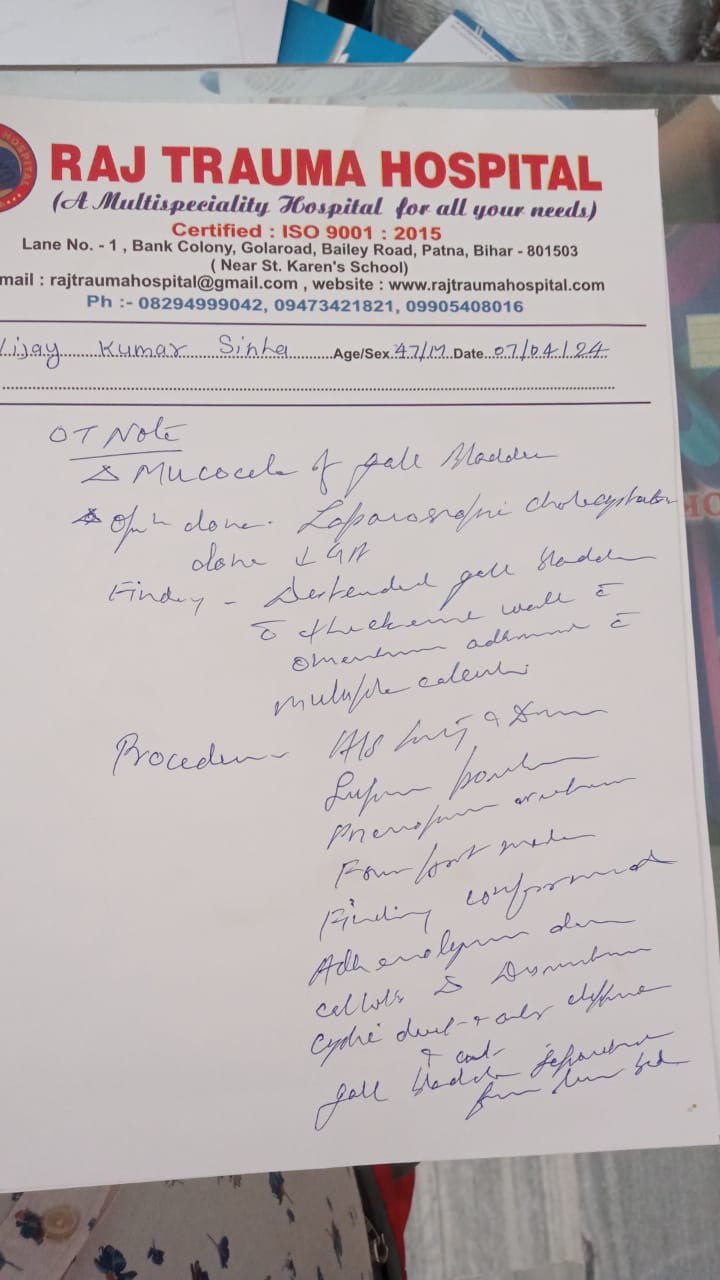 RAJ TRAUMA HOSPITAL
(A Multispeciality Hospital for all your needs)
Certified : ISO 9001 : 2015
Lane No. - 1 , Bank Colony, Golaroad, Bailey Road, Patna, Bihar - 801503
( Near St. Karen's School)
mail : rajtraumahospital@gmail.com , website : www.rajtraumahospital.com
Ph :- 08294999042, 09473421821, 09905408016
ijay Kumar Sinha Age/Sex 47/M Date 07/04/24
OT Note
Δ Mucocele of gall bladder
done. Laparoscopic cholecystectomy
done ↓ GA
Finding - Distended gall bladder
c̄ thickened wall c̄
omentum c̄
multiple calculi
Procedure -
Four port made
Finding confirmed
Adhenolysis done
callots Δ Dissection
Cystic duct +
& cut
gall bladder separated
from liver bed